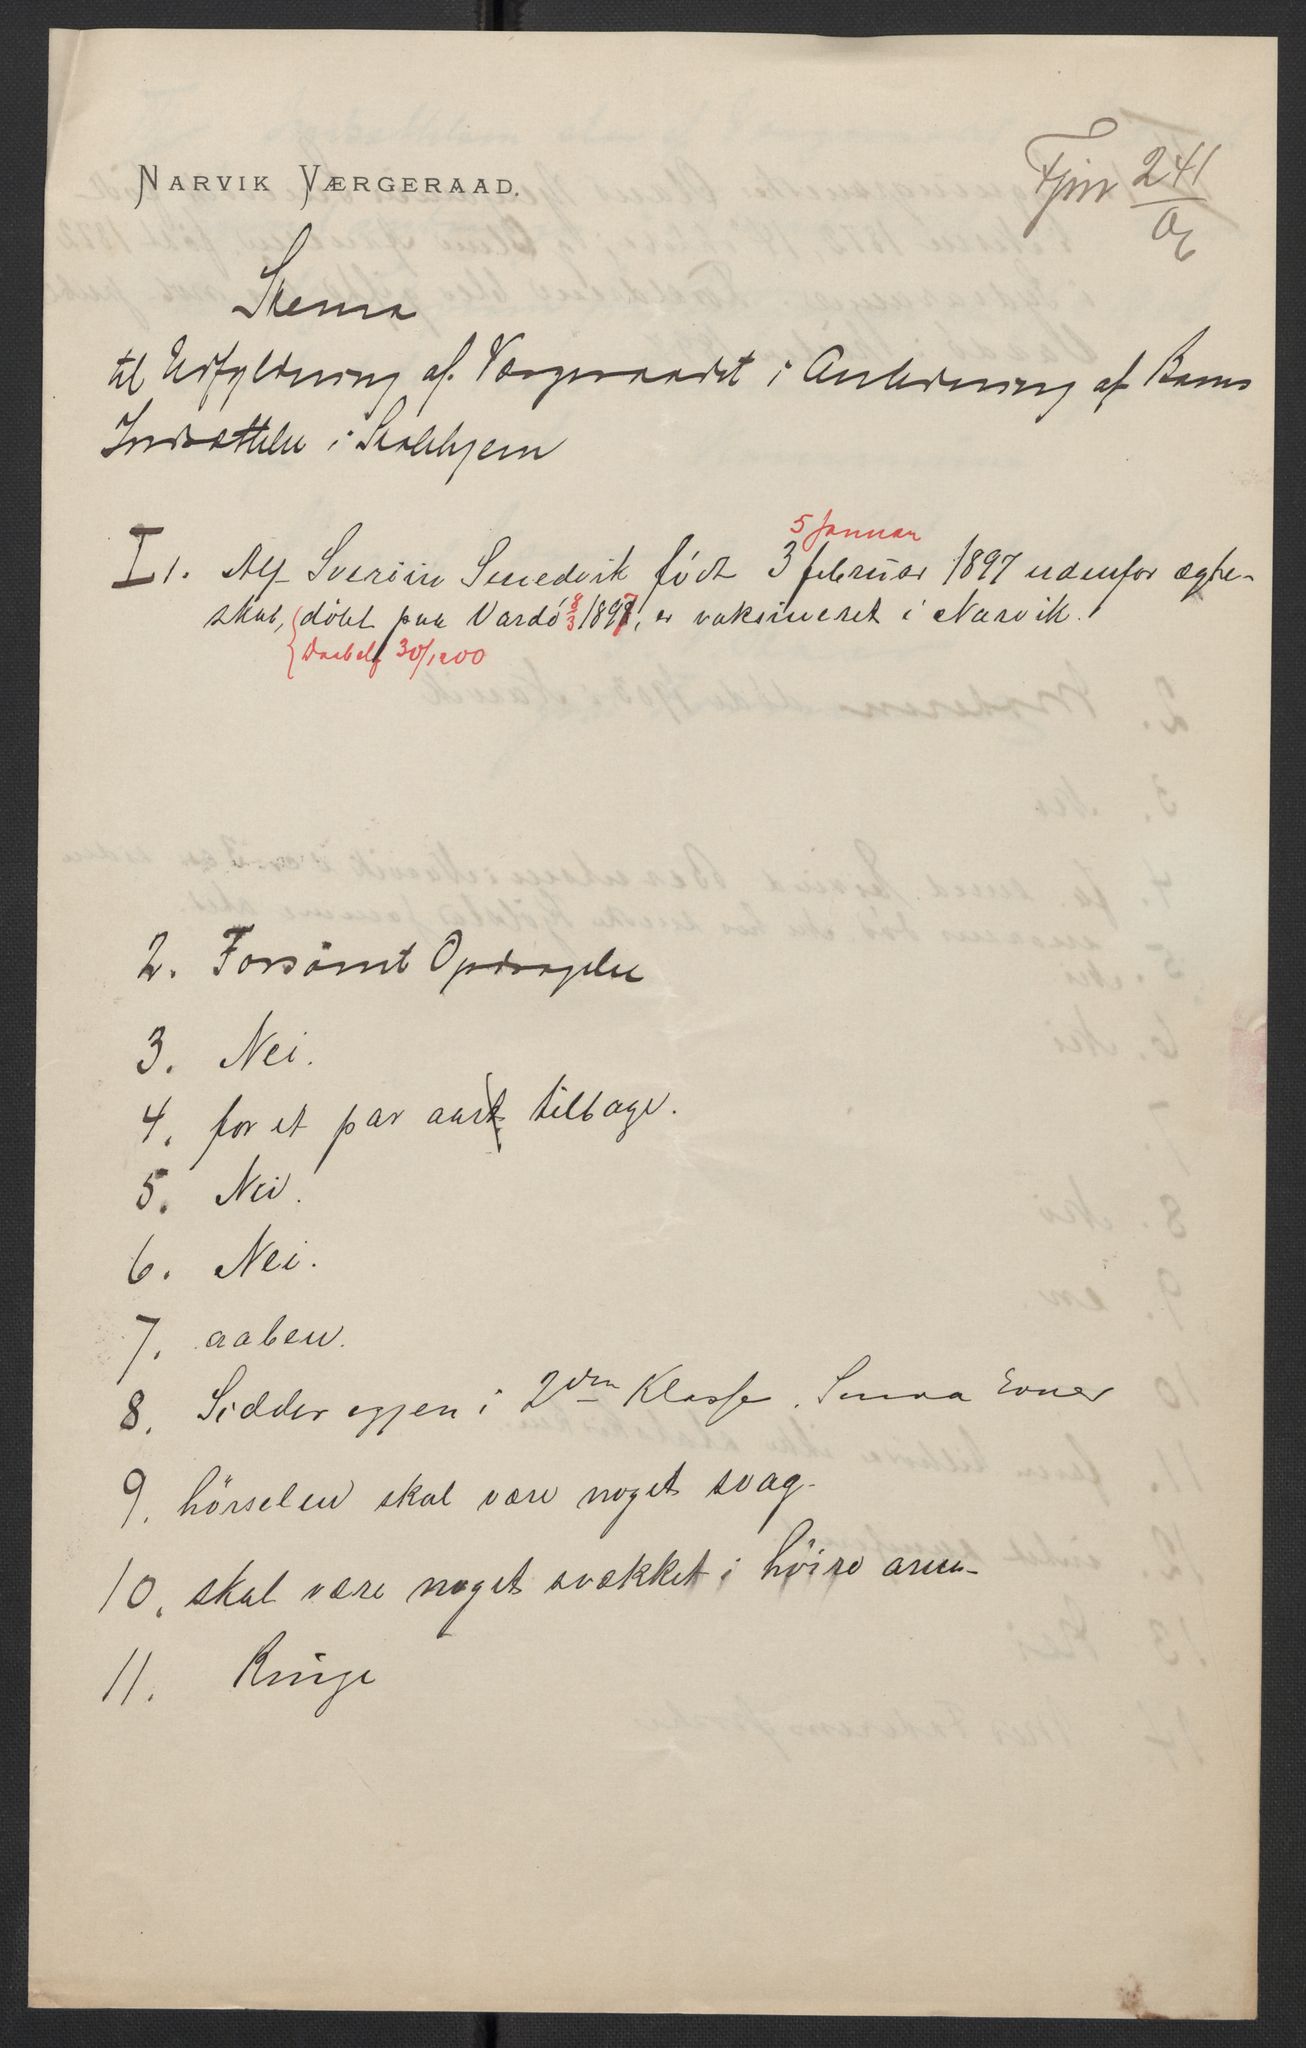 NARVIK VÆRGERAAD.
Fjnr 241
06
Skema
til Udfyldning af Værgeraadet i Anledning af Barns
Indsættelse i Skolehjem
I 1. Alf Sverin Smedvik født 3 februar 1897 udenfor ægte-
5 Januar
skab, døbt paa Vardö 8/3 1897, er vaksineret i Narvik.
Daabsaf 30/1 00
2. Forsömt Opdragelse
3. Nei.
4. for et par aar tilbage.
5. Nei.
6. Nei.
7. aaben.
8. Sidder igjen i 2den Klasse. Smaa Evner
9. hörselen skal være noget svag.
10. skal være noget svækket i höire arm.
11. Ringe